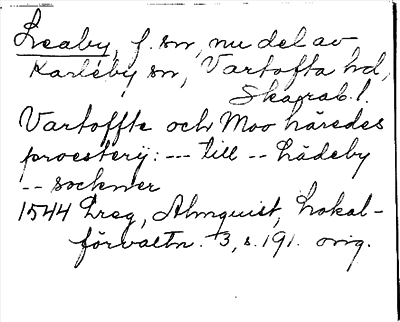 Leaby, f. sn, nu del av
Karleby sn, Vartofta hd,
Skarab. l.
Vartoffte och Moo häredes
proesterij: --- till -- Lädeby
-- sockner
1544 Dreg, Almquist, Lokal-
förvaltn. 3, s. 191. orig.